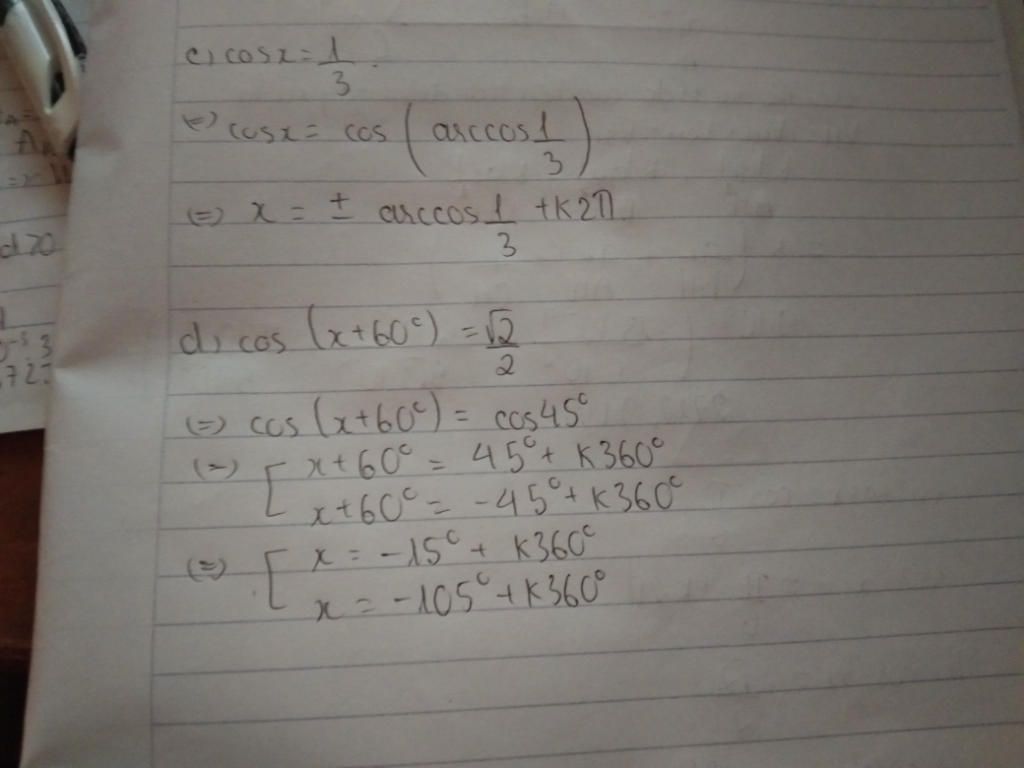 c, cosx = 1/3.
<=> cosx = cos (arccos 1/3)
<=> x = ± arccos 1/3 + K2π
d, cos (x+60°) = √2/2
<=> cos (x+60°) = cos45°
<=> [ x+60° = 45° + K360°
x+60° = -45° + K360°
<=> [ x = -15° + K360°
x = -105° + K360°
d>0